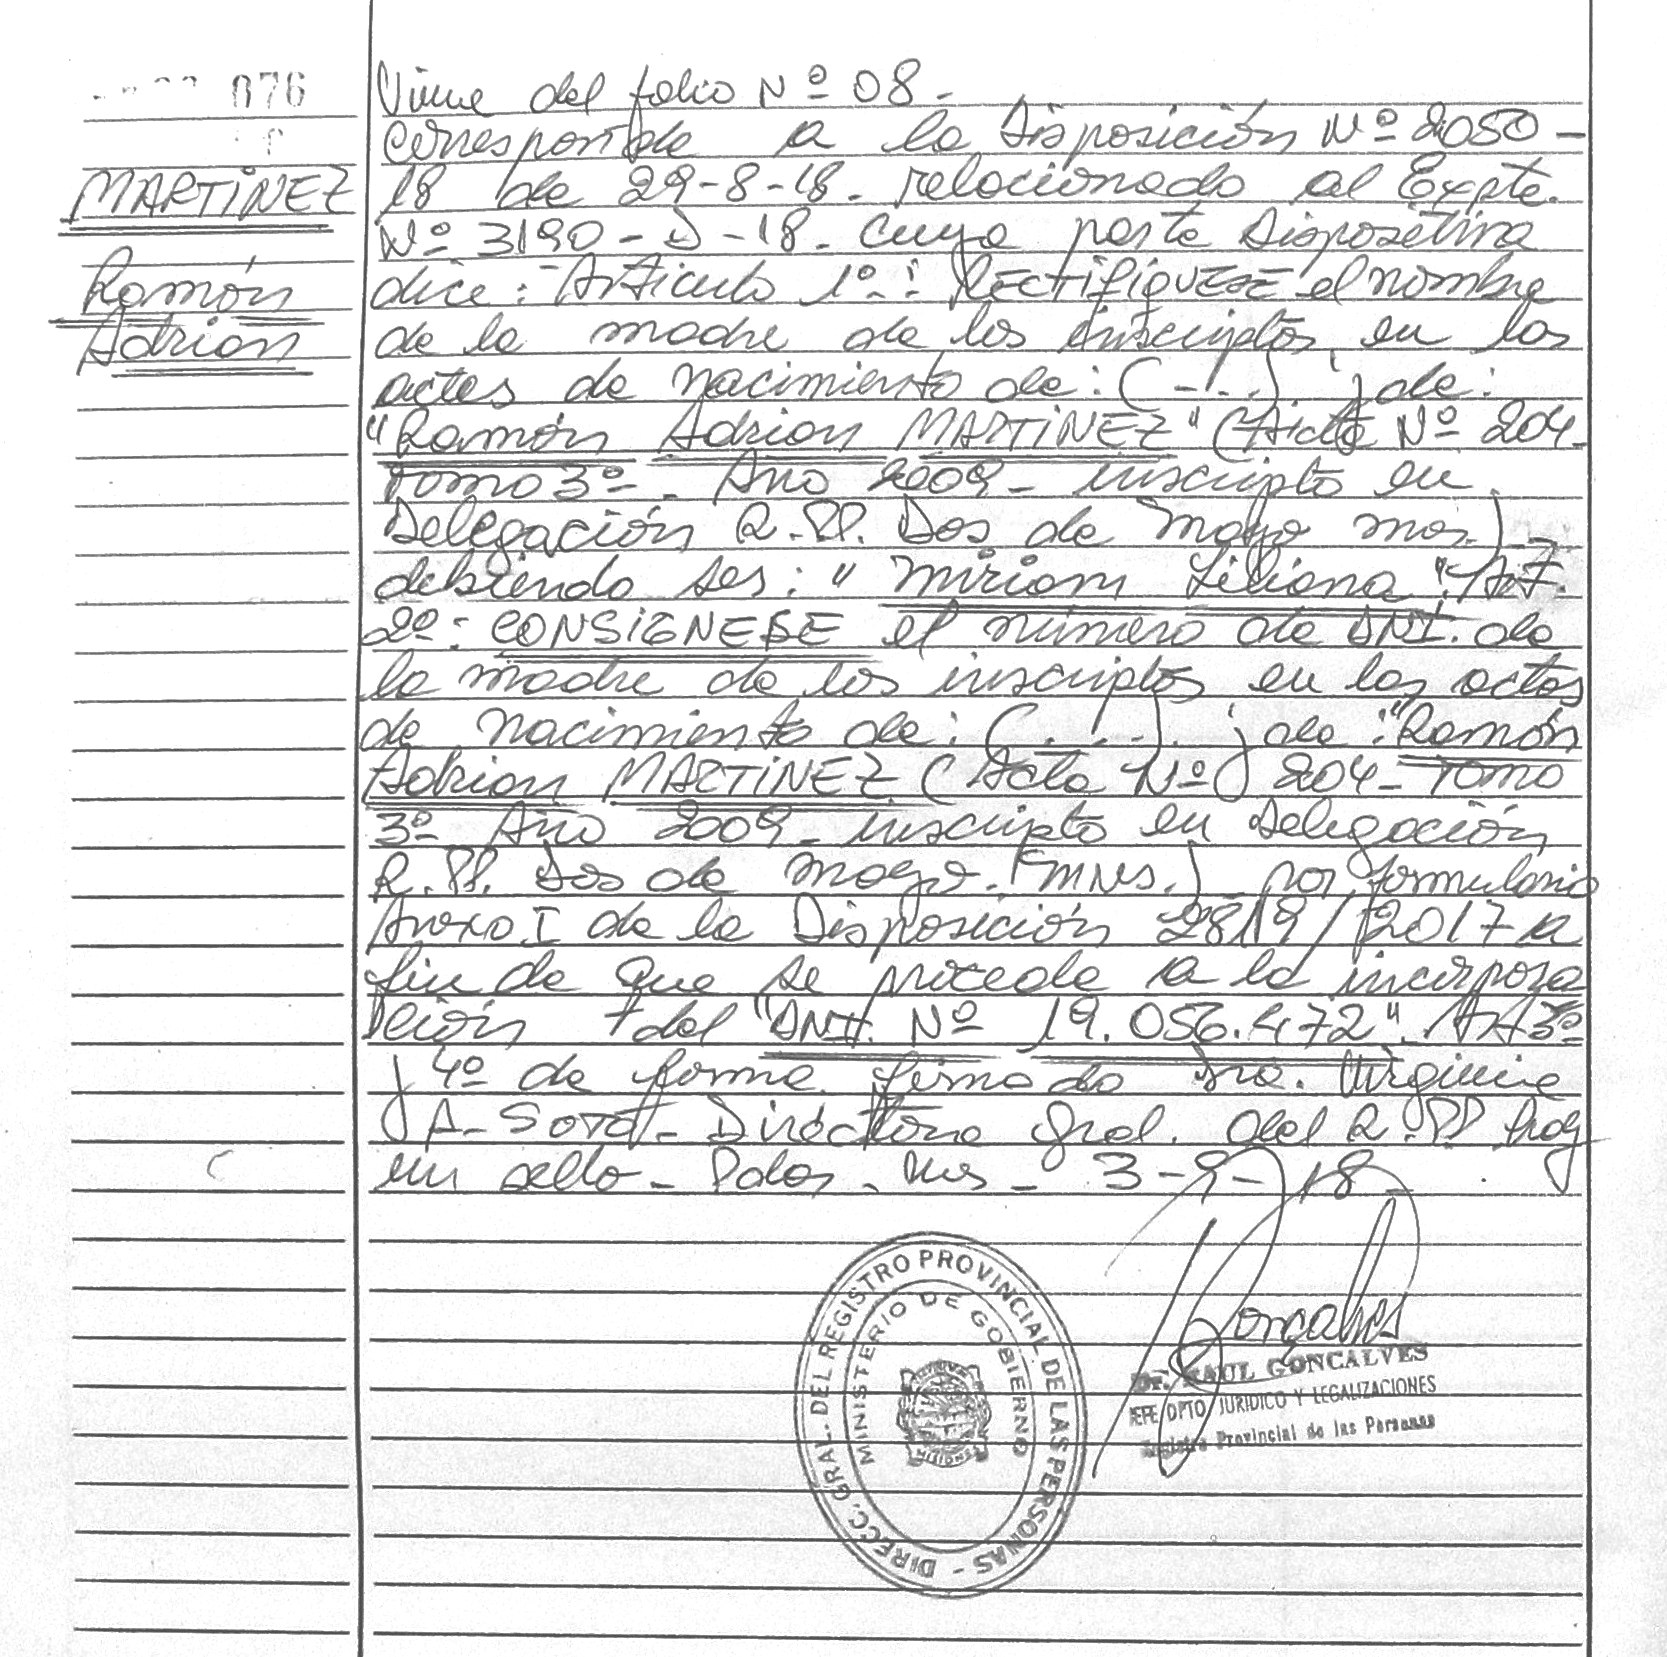 076
MARTINEZ
Ramón
Adrian
Viene del folio Nº 08 -
Corresponde a la Disposición Nº 2050 -
18 de 29-8-18 - relacionado al Expte.
Nº 3190 - D - 18 - cuya parte Dispositiva
dice: Articulo 1º-: RECTIFIQUESE el nombre
de la madre de los inscriptos en las
actas de nacimiento de: (-...) y de:
"Ramón Adrian MARTINEZ" (Acta Nº 204-
Tomo 3º - Año 2009 - inscripto en
Delegación R.PP. Dos de Mayo Mns.) -
debiendo ser: "Miriam Liliana". Art.
2º: CONSIGNESE el número de DNI. de
la madre de los inscriptos en las actas
de nacimiento de: (....). y de: "Ramón
Adrian MARTINEZ (Acta Nº 204 - Tomo
3º - Año 2009 - inscripto en Delegación
R.PP. Dos de Mayo. (Mns.) por formulario
Anexo I de la Disposición 2819/2017 a
fin de que se proceda a la incorpora
ción del "DNI. Nº 19.056.472". Art 3º
y 4º de forma firmado Sra. Virginia
A. Soto - Directora Gral. del R.PP. hay
un sello - Pdas. Mns - 3-9-18 -
DIRECC. GRAL. DEL REGISTRO PROVINCIAL DE LAS PERSONAS -
MINISTERIO DE GOBIERNO
MISIONES
Gonçalves
Dr. RAUL GONCALVES
JEFE DPTO JURIDICO Y LEGALIZACIONES
Registro Provincial de las Personas